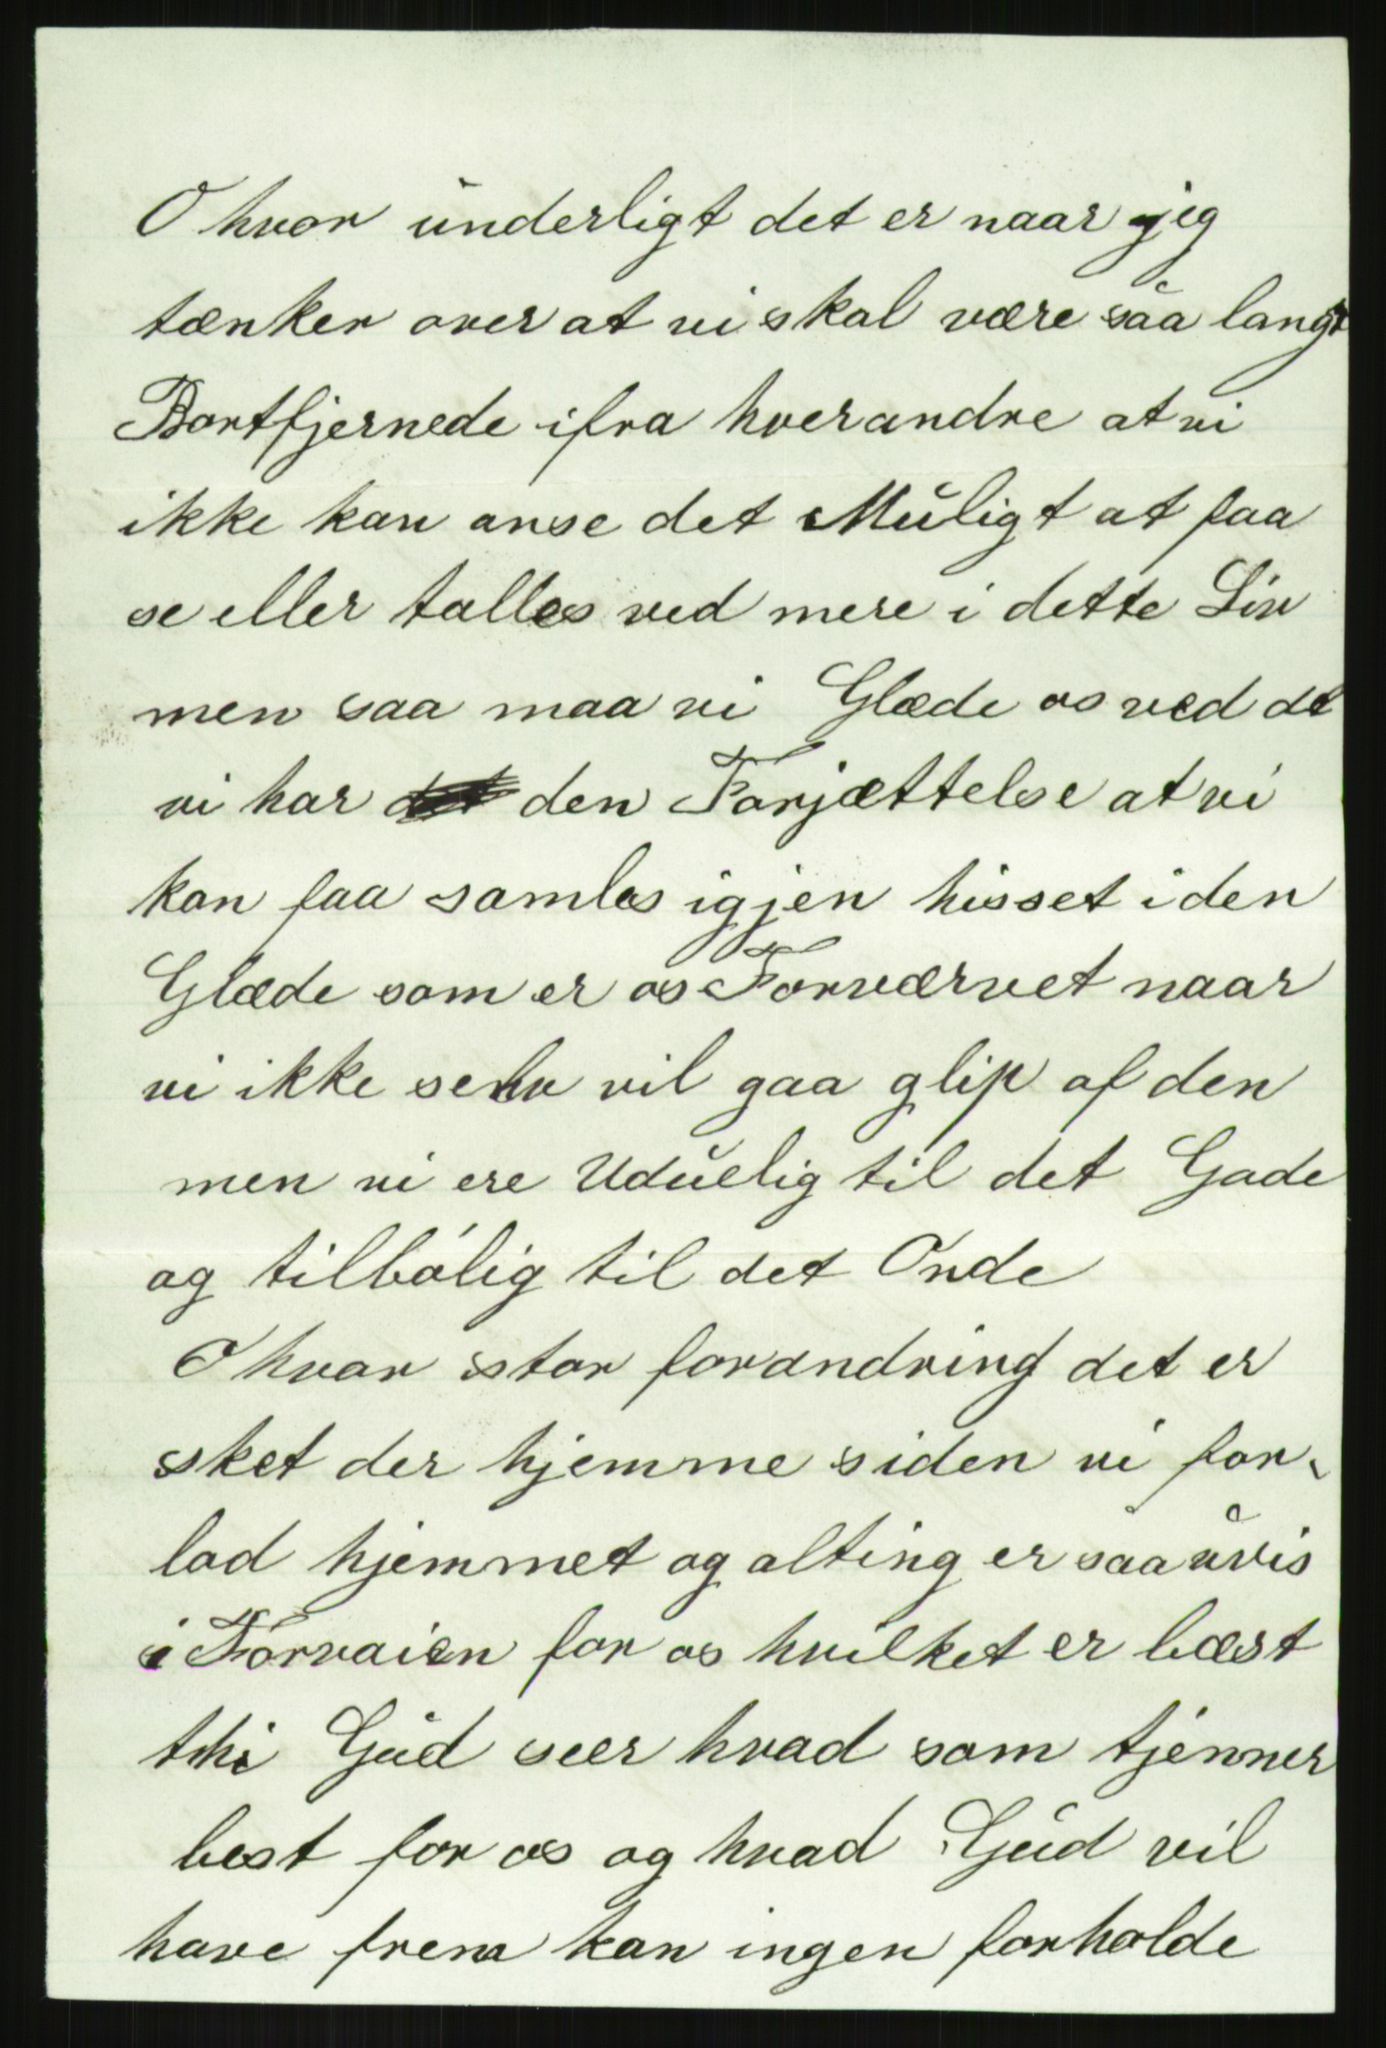 O hvor underligt det er naar jeg
tænker over at vi skal være saa langt
Bortfjernede ifra hverandre at vi
ikke kan anse det Muligt at faa
se eller talles ved mere i dette Liv
men saa maa vi Glæde os ved det
vi har det den Forjættelse at vi
kan faa samles igjen hisset i den
Glæde som er os Forværvet naar
vi ikke selv vil gaa glip af den
men vi ere Uduelig til det Gode
og tilbólig til det Onde
O hvor stor forandring det er
sket der hjemme siden vi for-
lod hjemmet og alting er saa uvis
i Forvaien for os hvilket er bæst
thi Gud seer hvad som tjenner
best for os og hvad Gud vil
have frem kan ingen forholde